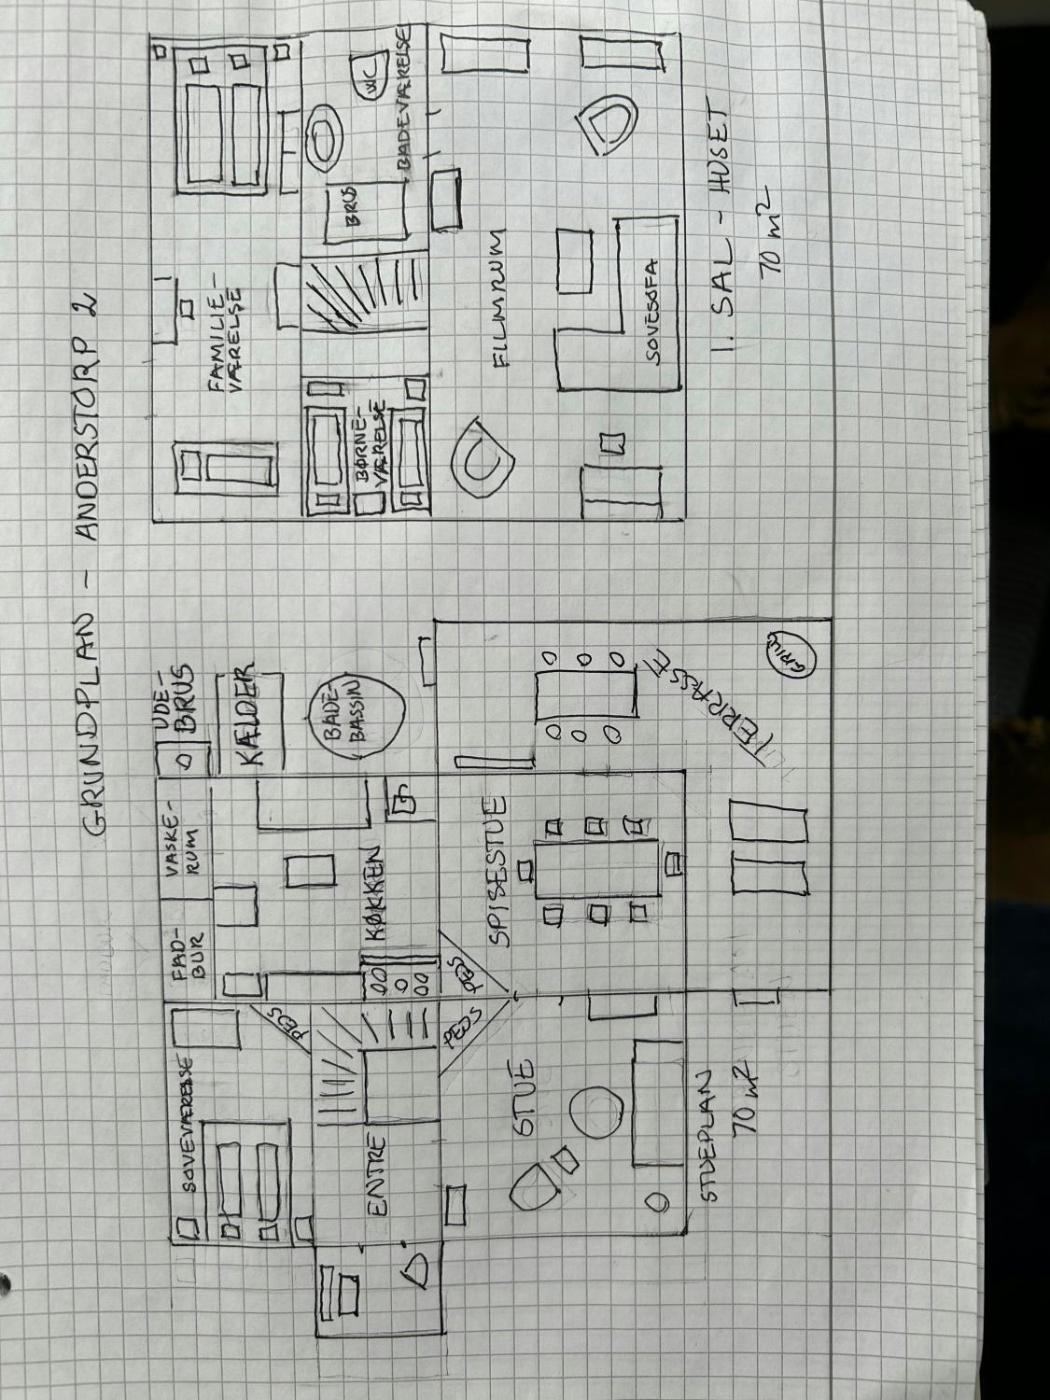 GRUNDPLAN - ANDERSTORP 2
SOVEVÆRELSE
FAD-
BUR
VASKE-
RUM
UDE-
BRUS
KÆLDER
PEJS
BADE-
BASSIN
ENTRE
KØKKEN
PEJS
PEJS
STUE
SPISESTUE
TERRASSE
GRILL
STUEPLAN
70 m²
FAMILIE-
VÆRELSE
BØRNE-
VÆRELSE
BRUS
WC
BADEVÆRELSE
FILMRUM
SOVESOFA
1. SAL - HUSET
70 m²